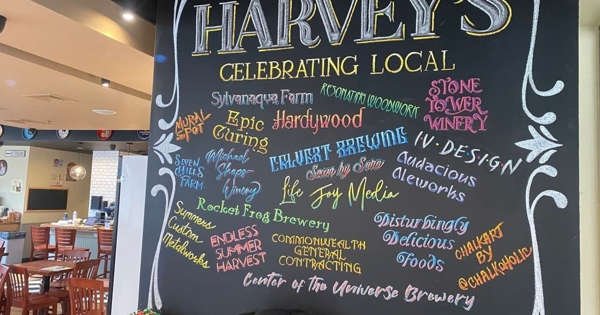 HARVEY'S
CELEBRATING LOCAL
Sylvanaqua Farm
RESONATING WOODWORK
STONE
TOWER
WINERY
MURAL
on the
SPOT
Epic
Curing
Hardywood
CALVERT BREWING
IV·DESIGN
SEVEN
HILLS
FARM
Michael
Shaps
Winery
Sewn by Sara
Audacious
Aleworks
Life by Joy Media
Rocket Frog Brewery
Summers
Custom
Matchworks
ENDLESS
SUMMER
HARVEST
COMMONWEALTH
GENERAL
CONTRACTING
Disturbingly
Delicious
Foods
CHALKART
BY
@CHALKOHOLIC
Center of the Universe Brewery